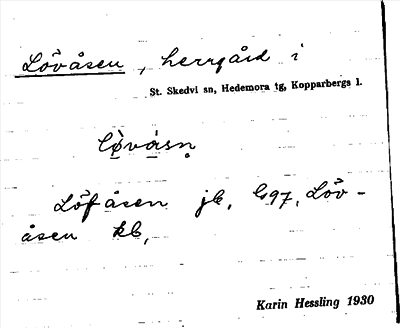 Lövåsen, herrgård i
St. Skedvi sn, Hedemora tg, Kopparbergs l.
lø̀våsn̥
Löfåsen jb, 97, Löv-
åsen kb,
Karin Hessling 1930